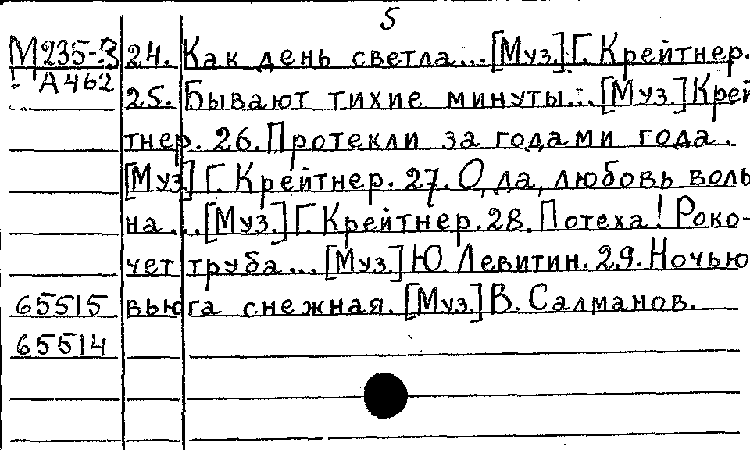 5
М235-3 24. Как день светла... [Муз.] Г. Крейтнер.
А462
25. Бывают тихие минуты... [Муз.] Крей
тнер. 26. Протекли за годами года.
[Муз.] Г. Крейтнер. 27. О, да, любовь воль
на... [Муз.] Г. Крейтнер. 28. Потеха! Роко-
чет труба... [Муз.] Ю. Левитин. 29. Ночью
65515 вьюга снежная. [Муз.] В. Салманов.
65514